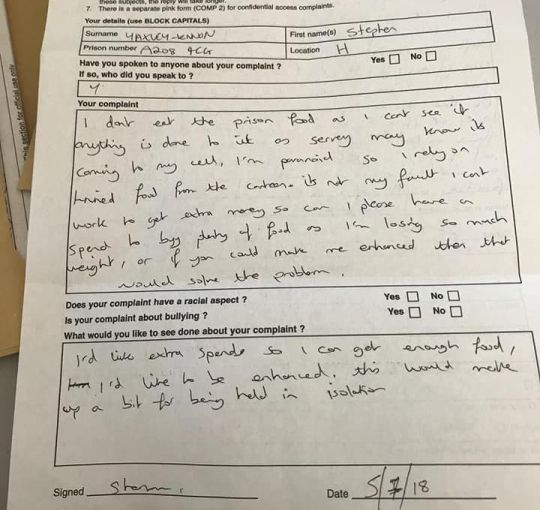 these subjects, the reply will take longer.
7. There is a separate pink form (COMP 2) for confidential access complaints.
Your details (use BLOCK CAPITALS)
Surname YAXLEY-LENNON First name(s) Stephen
Prison number A208 4CG Location H
Have you spoken to anyone about your complaint ? Yes No
If so, who did you speak to ?
Y
Your complaint
I dont eat the prison food as I cant see if
anything is done to it as servery may know its
coming to my cell, I'm paranoid so I rely on
tinned food from the canteen. its not my fault I cant
work to get extra money so can I please have a
spend to buy plenty of food as I'm losing so much
weight, or if you could make me enhanced then that
would solve the problem.
Does your complaint have a racial aspect ? Yes No
Is your complaint about bullying ? Yes No
What would you like to see done about your complaint ?
I'd like extra spends so I can get enough food,
I'd like to be enhanced, this would make
up a bit for being held in isolation
Signed Date 5/7/18